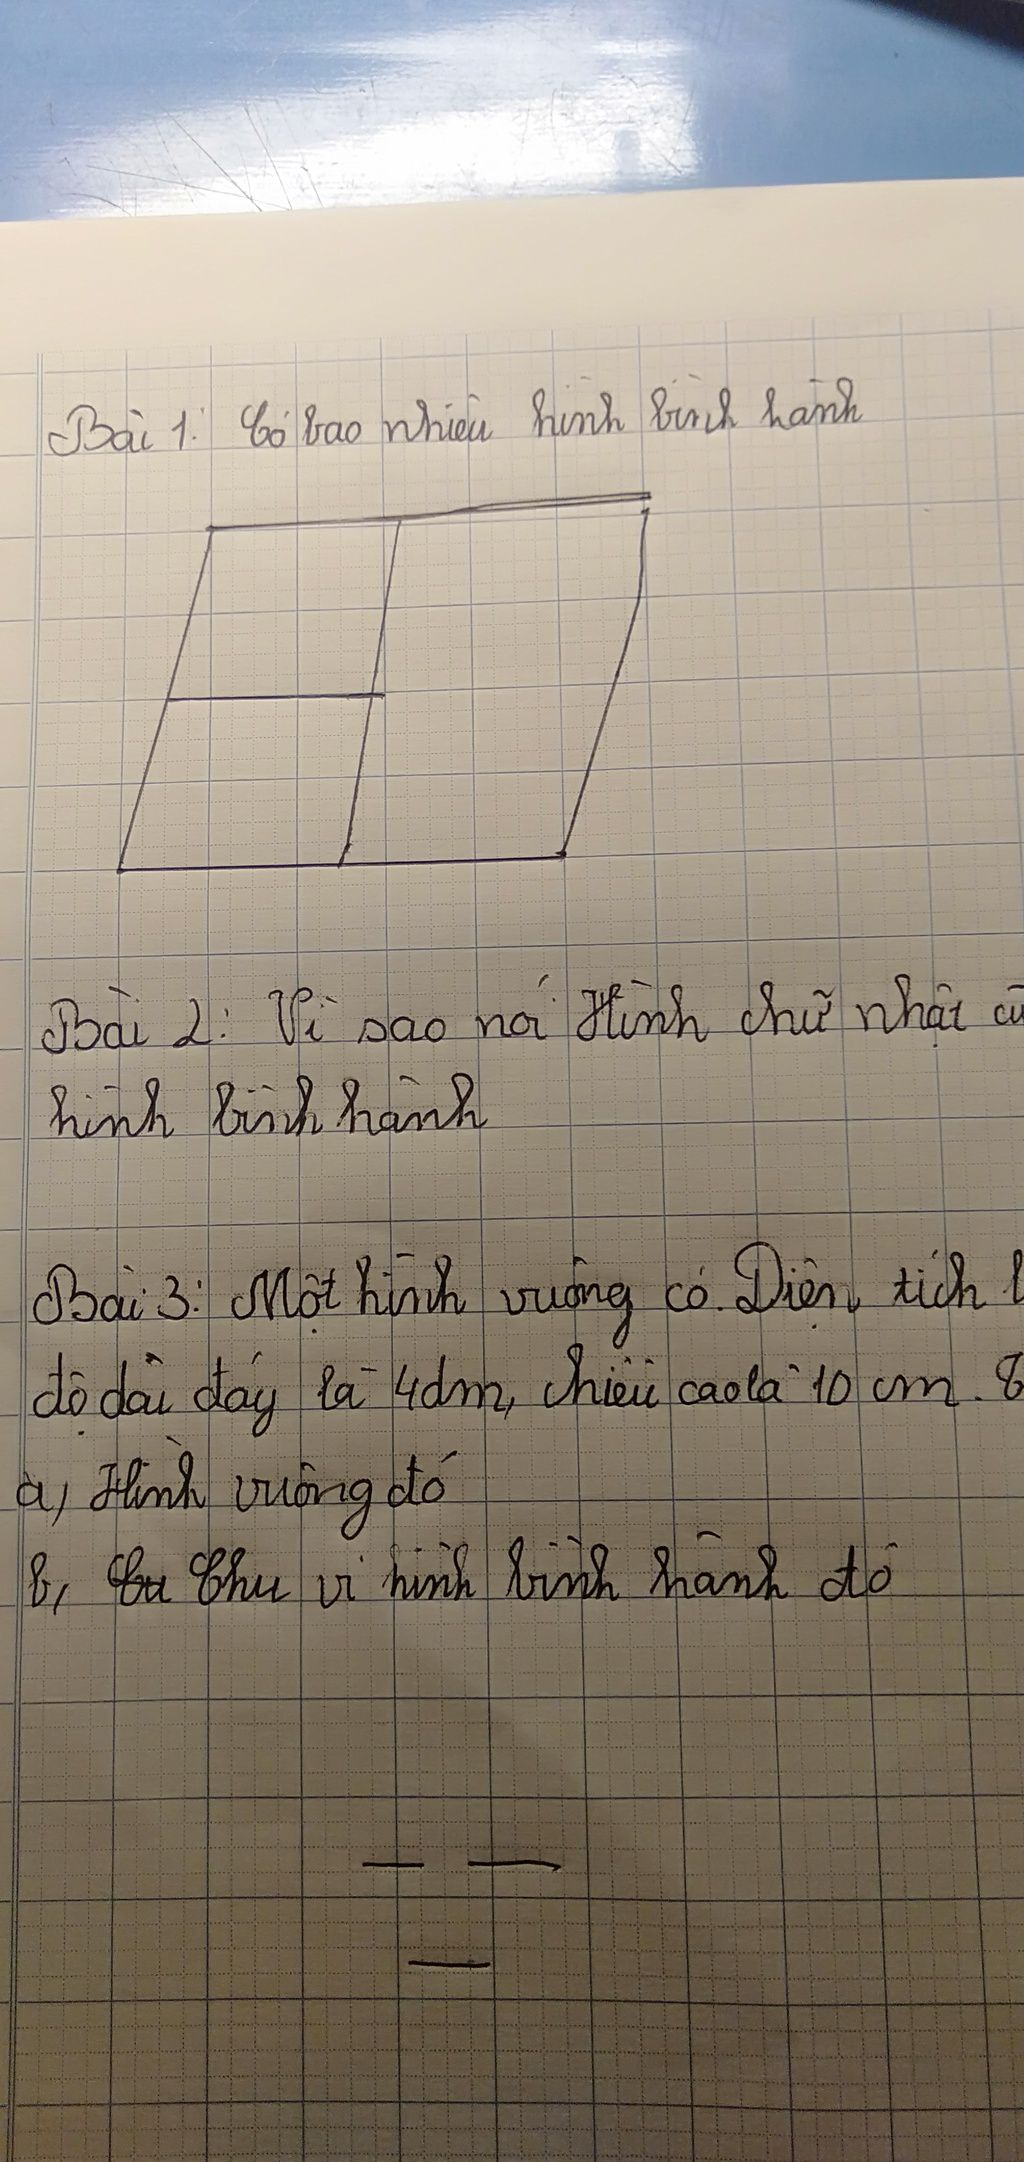 Bài 1: Có bao nhiêu hình bình hành
Bài 2: Vì sao nói Hình chữ nhật
hình bình hành
Bài 3: Một hình vuông có Diện tích
độ dài đáy là 4dm, chiều cao là 10 cm.
a, Hình vuông đó
b, Chu vi hình bình hành đó